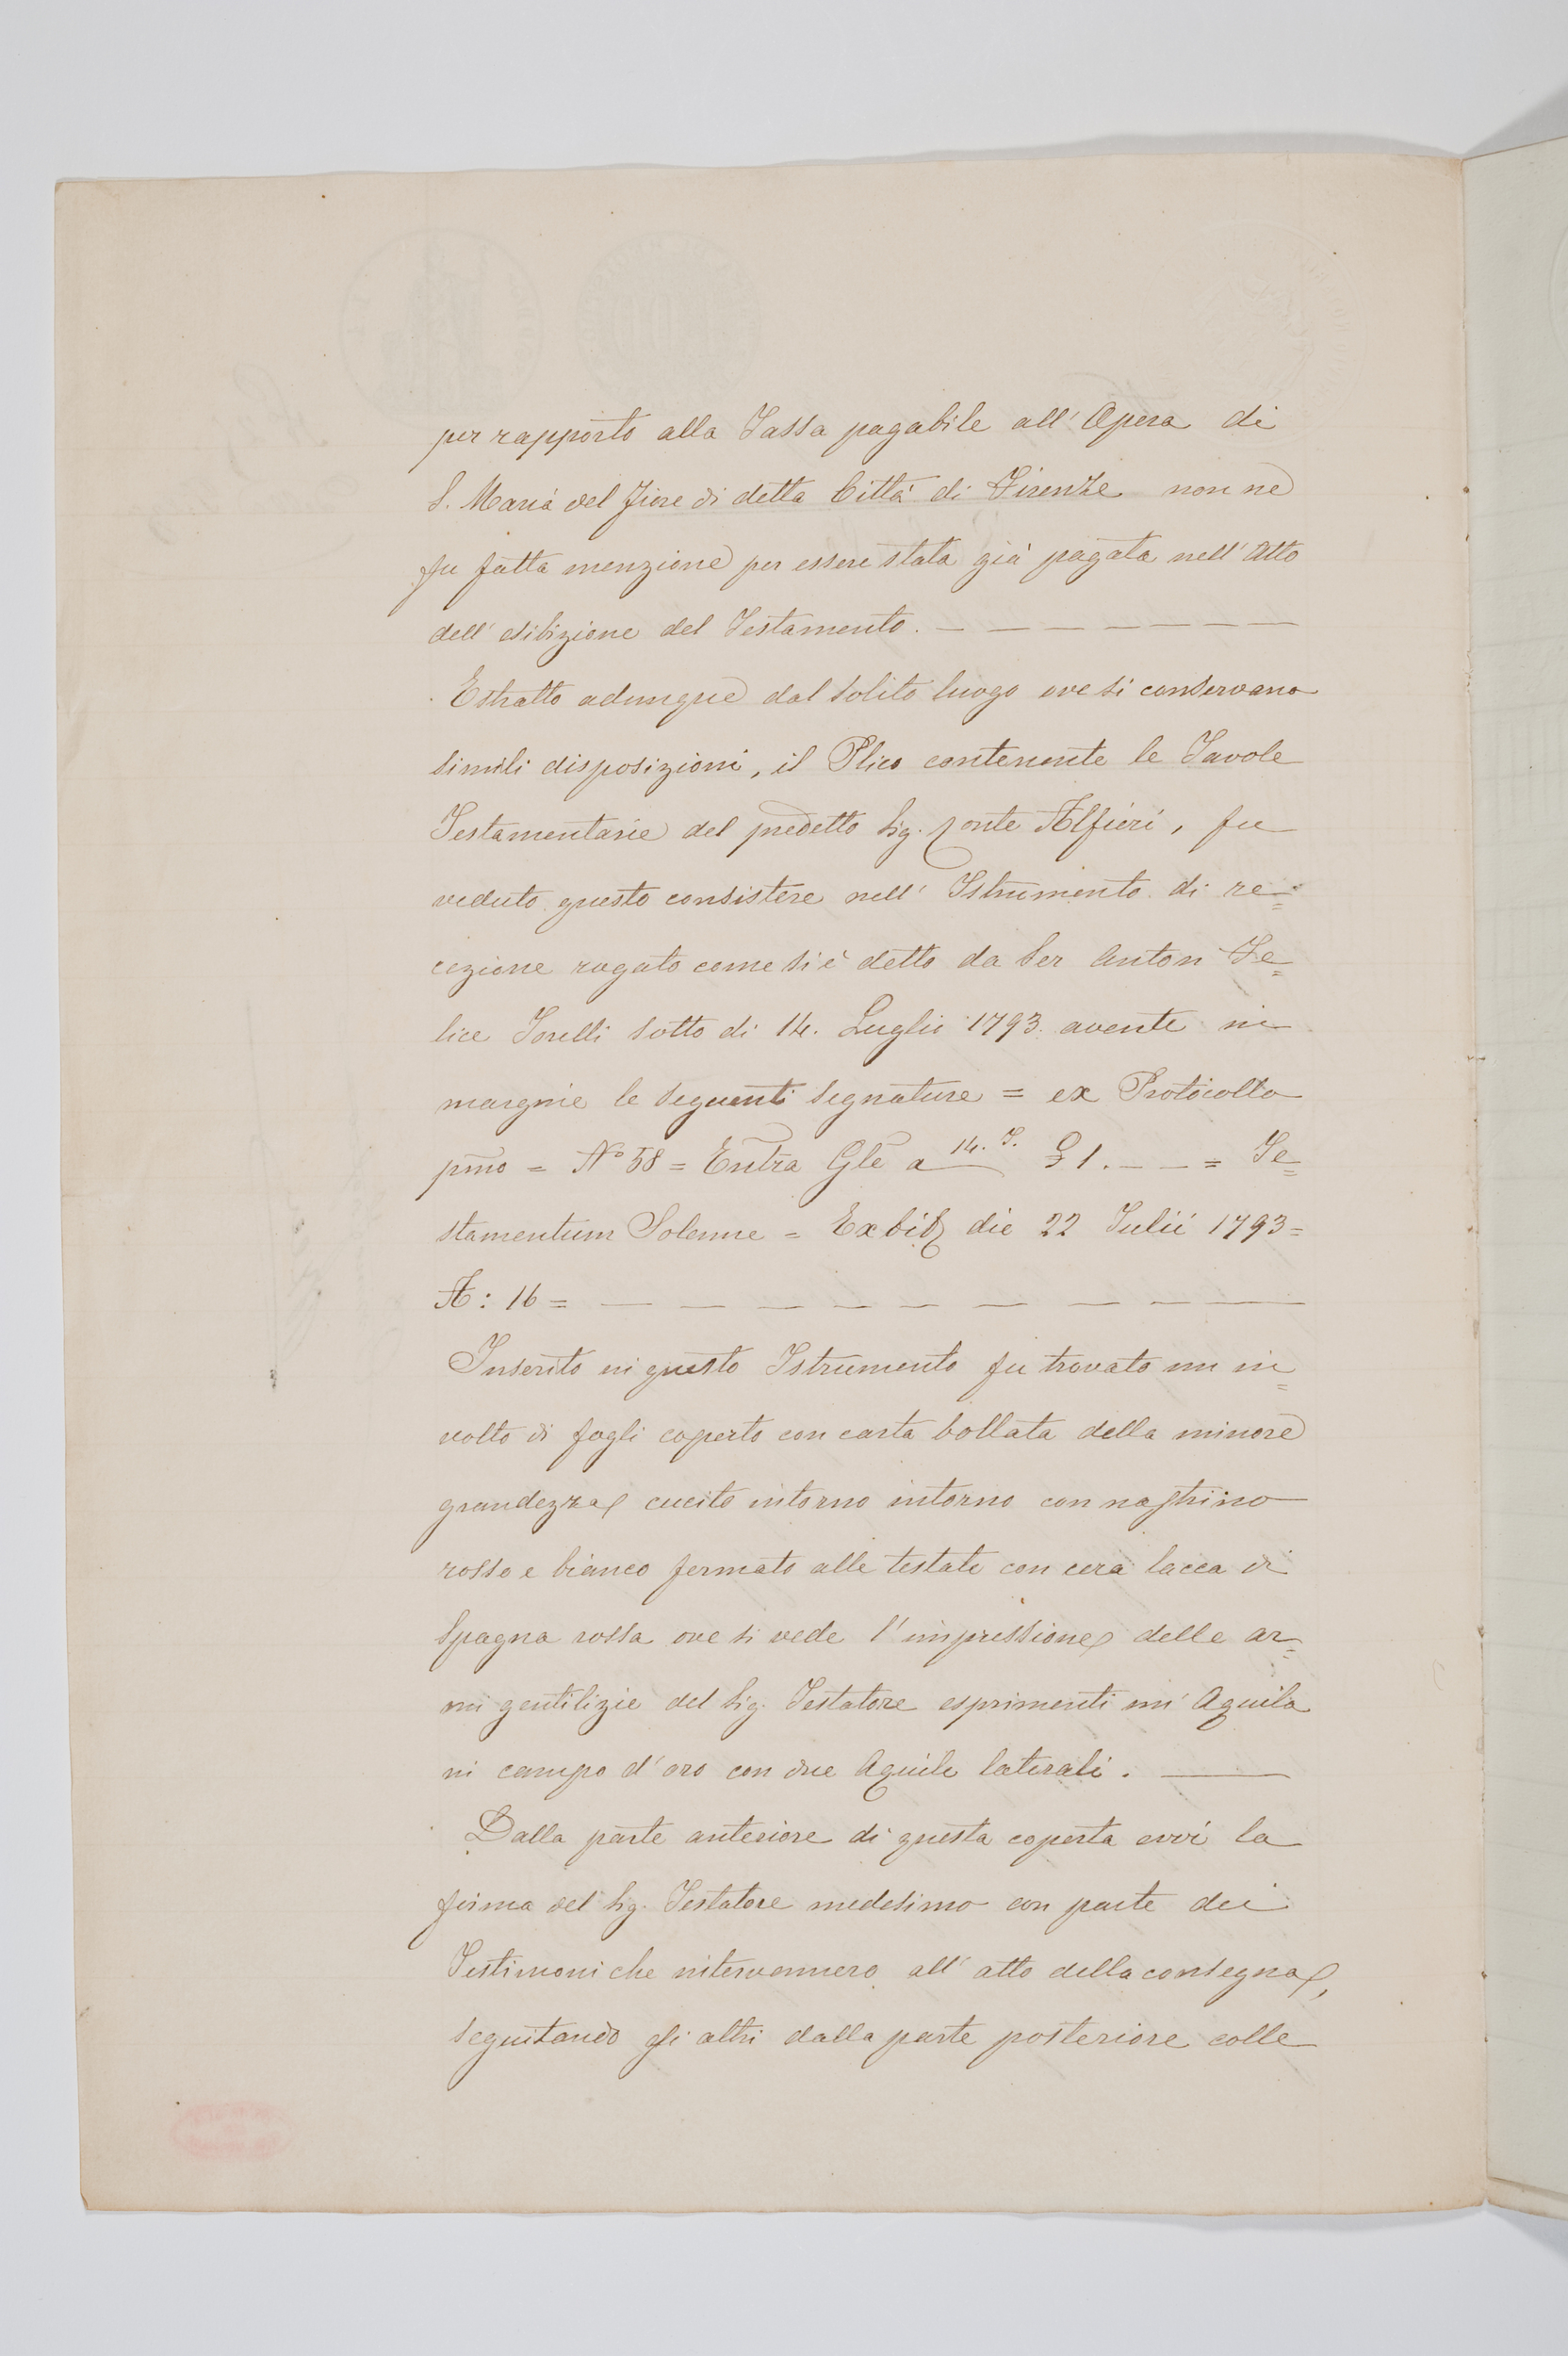 per rapporto alla Tassa pagabile all' Opera di
S. Maria del Fiore di detta Città di Firenze non ne
fu fatta menzione per essere stata già pagata nell' Atto
dell' esibizione del Testamento. — — — — — — —
Estratto adunque dal solito luogo ove si conservano
simili disposizioni, il Plico contenente le Tavole
Testamentarie del predetto Sig. Conte Alfieri, fu
veduto questo consistere nell' Istrumento di re=
cezione rogato come si è detto da Ser Anton Fe=
lice Torelli sotto di 14. Luglio 1793. avente in
margine le seguenti segnature = ex Protocollo
pmo = No 58 = Entra Gle a 14. T. £ 1. — — = Te=
stamentum Solemne = Exbit die 22 Julii 1793 =
A: 16 = — — — — — — — — —
Inserito in questo Istrumento fu trovato un in=
volto di fogli coperto con carta bollata della minore
grandezza cucito intorno intorno con nastrino
rosso e bianco fermato alle testate con cera lacca di
Spagna rossa ove si vede l'impressione delle ar=
mi gentilizie del Sig. Testatore esprimenti un' Aquila
in campo d'oro con due Aquile laterali. —
Dalla parte anteriore di questa coperta evvi la
firma del Sig. Testatore medesimo con parte dei
Testimoni che intervennero all' atto della consegna,
seguitando gli altri dalla parte posteriore colle